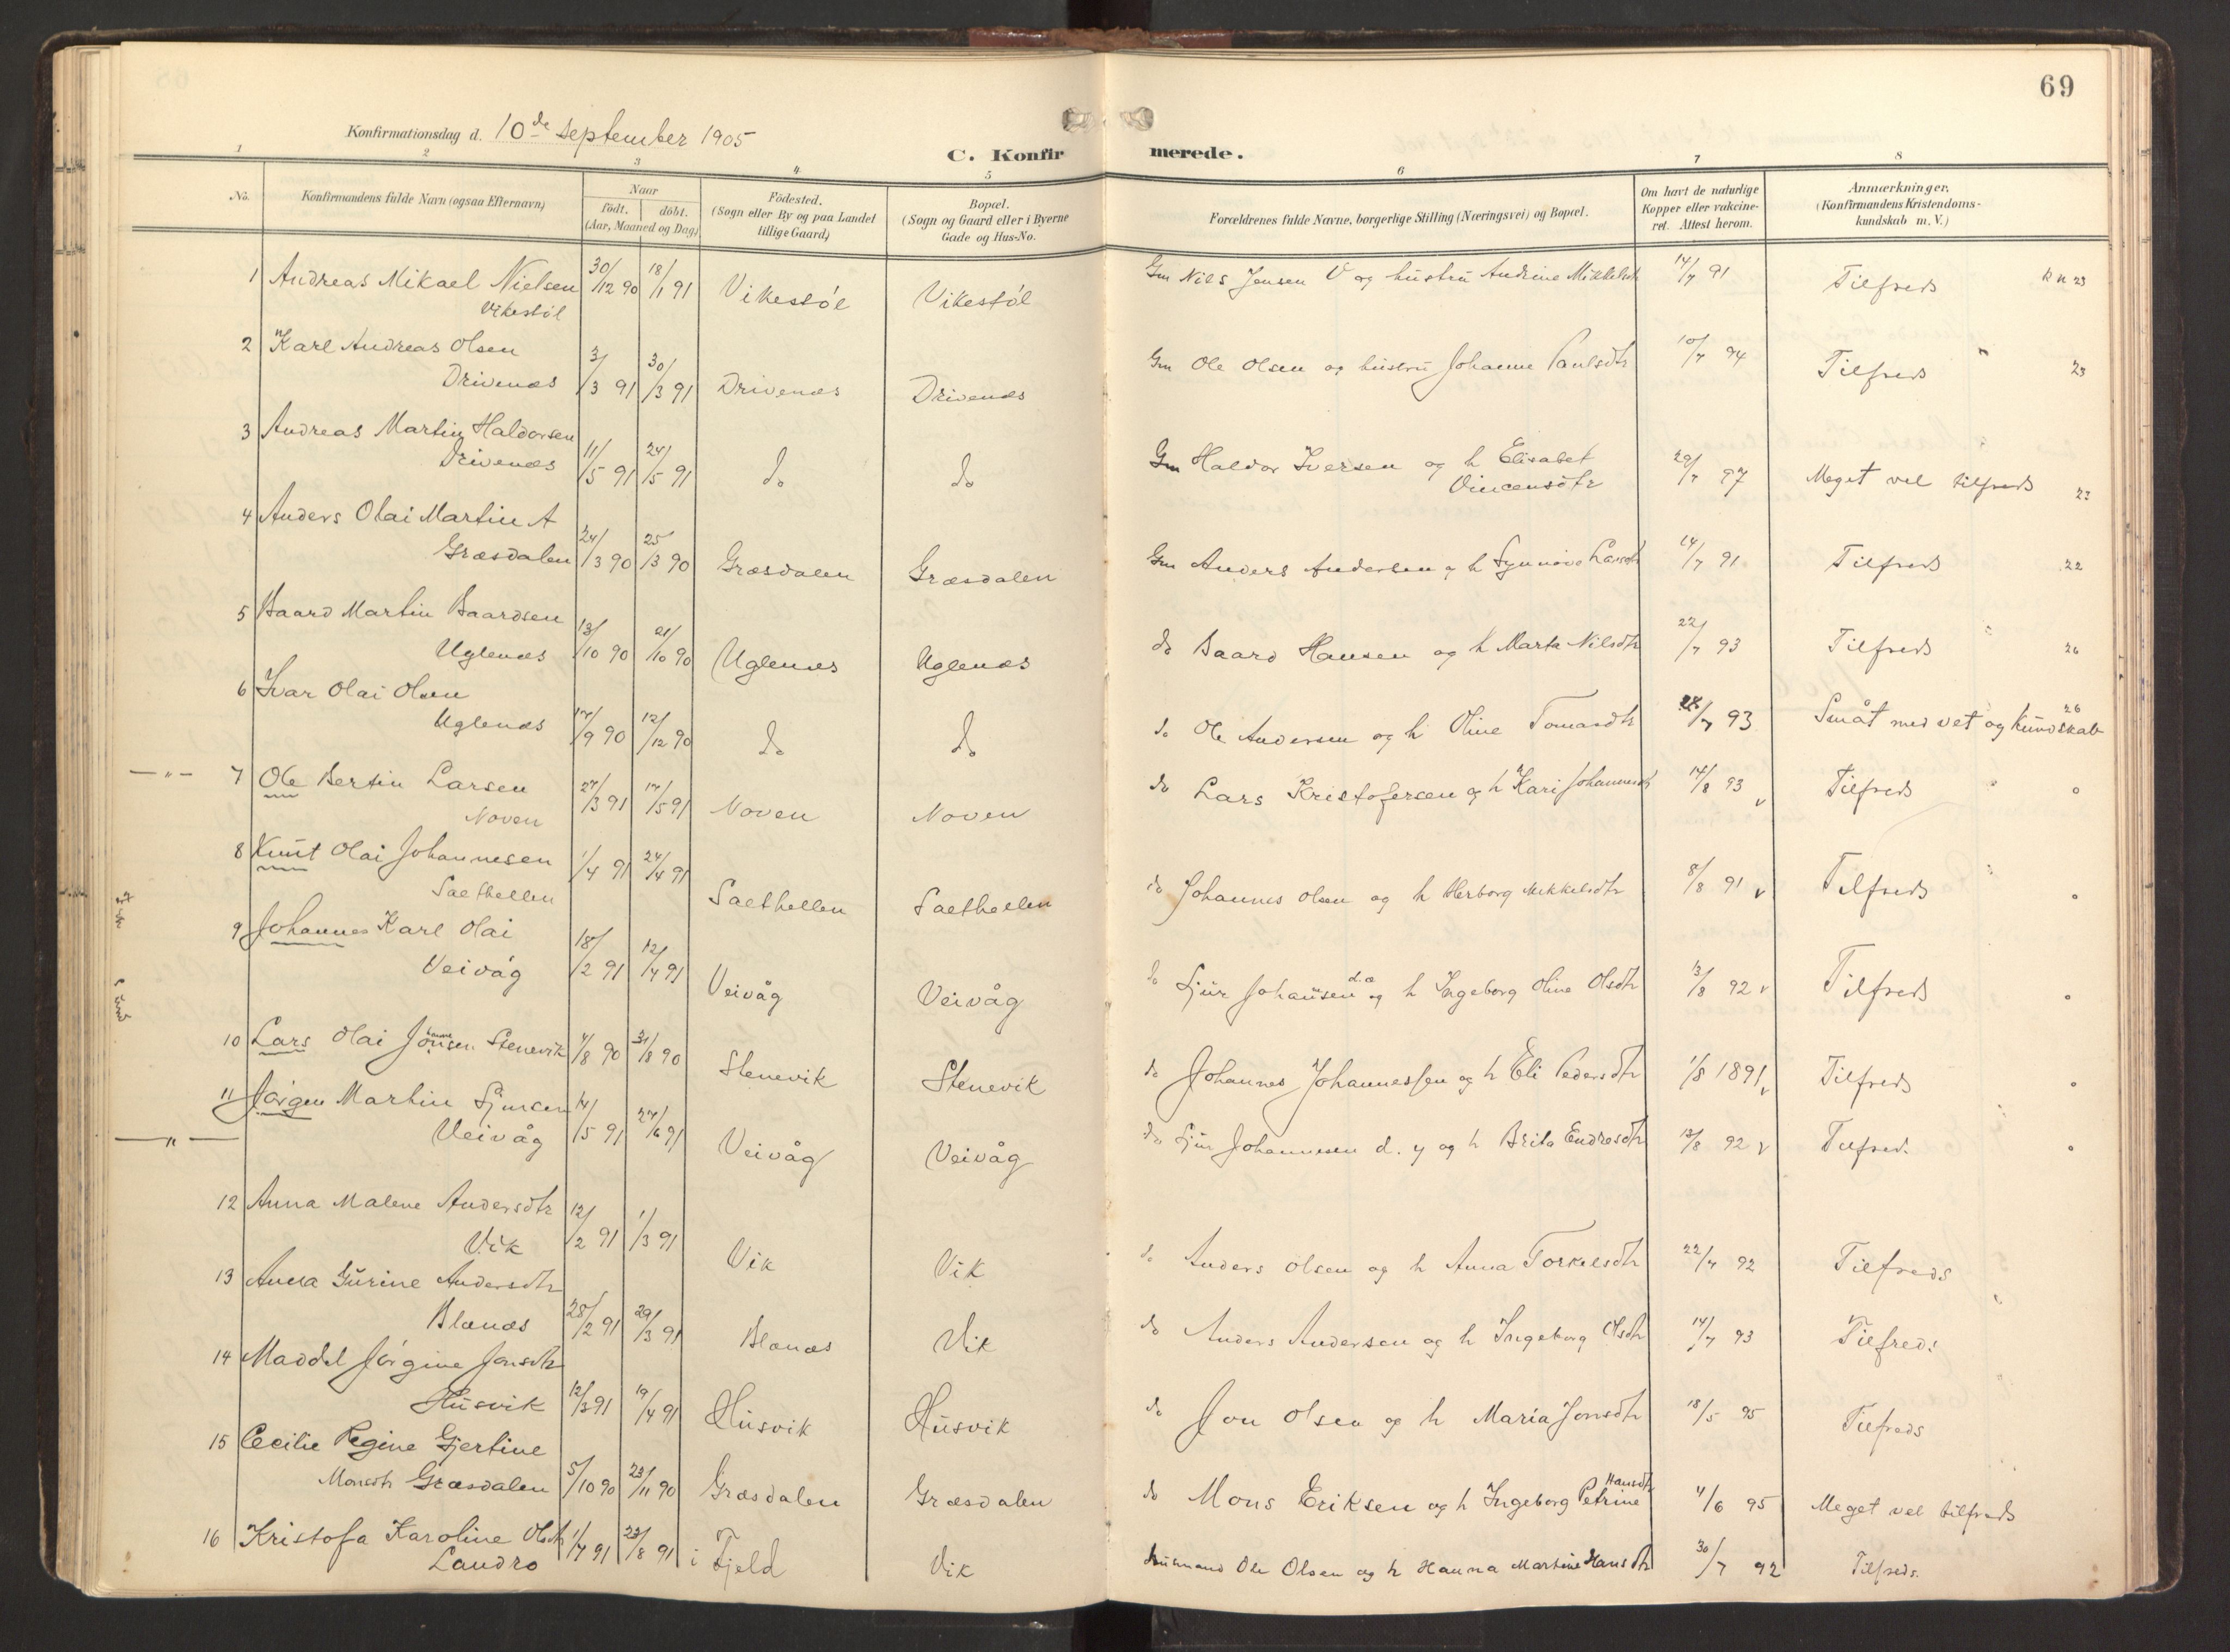 69
Konfirmationsdag d. 10de September 1905
C. Konfirmerede.
1 2 3 4 5 6 7 8
No.
Konfirmandens fulde Navn (ogsaa Efternavn)
Naar
født. | døbt.
(Aar, Maaned og Dag)
Fødested.
(Sogn eller By og paa Landet
tillige Gaard)
Bopæl.
(Sogn og Gaard eller i Byerne
Gade og Hus-No.
Forældrenes fulde Navne, borgerlige Stilling (Næringsvei) og Bopæl.
Om havt de naturlige
Kopper eller vakcine-
ret. Attest herom.
Anmærkninger,
(Konfirmandens Kristendoms-
kundskab m. V.)
1 Andreas Mikael Nielsen 30/12 90 18/1 91 Vikestøl Vikestøl Gm Nils Jensen V og hustru Andrine Mikkelsdtr 14/7 91 Tilfreds 23
Vikestøl
2 Karl Andreas Olsen
Drivenæs 3/3 91 30/3 91 Drivenæs Drivenæs Gm Ole Olsen og hustru Johanne Paulsdtr 10/7 94 Tilfreds " 23
3 Andreas Martin Haldorsen
Drivenæs 11/5 91 24/5 91 do do Gm Haldor Iversen og h Elisabet
Vincensdtr 29/7 97 Meget vel tilfreds
4 Anders Olai Martin A
Græsdalen 24/3 90 25/3 90 Græsdalen Græsdalen Gm Anders Andersen og h Synnøve Larsdtr 14/7 91 Tilfreds 22
5 Baard Martin Baardsen
Uglenæs 13/10 90 21/10 90 Uglenæs Uglenæs do Baard Hansen og h Marta Nilsdtr 22/7 93 Tilfreds " 26
6 Ivar Olai Olsen
Uglenæs 17/9 90 12/12 90 do do do Ole Andersen og h Oline Tomasdtr /7 93 Småt med vet og Kundskab 26
— " — 7 Ole Bertin Larsen 27/3 91 17/5 91 Noven Noven do Lars Kristofersen og h Kari Johannesdtr 14/8 93 v Tilfreds "
Noven
8 Knut Olai Johannesen 1/4 91 24/4 91 Saethellen Saethellen do Johannes Olsen og h Herborg Mikkelsdtr 8/8 91 v Tilfreds "
Saethellen
9 Johannes Karl Olai
Veivåg 18/2 91 12/4 91 Veivåg Veivåg do Sjur Johansen d.æ og h Ingeborg Oline Olsdtr 13/8 92 v Tilfreds
10 Lars Olai Jonsen Stenevik 4/8 90 31/8 90 Stenevik Stenevik do Johannes Johannessen og h Eli Pedersdtr 1/8 1891 v Tilfreds
11 Jørgen Martin Sjursen
— " — Veivåg 14/5 91 27/6 91 Veivåg Veivåg do Sjur Johannesen d. y og h Brita Endresdtr 13/8 92 v Tilfreds
12 Anna Malene Andersdtr
Vik 12/2 91 1/3 91 Vik Vik do Anders Olsen og h Anna Torkelsdtr 22/7 92 Tilfreds
13 Anna Gurine Andersdtr
Blænæs 28/2 91 29/3 91 Blænæs Vik do Anders Andersen og h Ingeborg Olsdtr 14/7 93 Tilfreds
14 Maddel Jørgine Jonsdtr
Husvik 12/3 91 19/4 91 Husvik Husvik do Jon Olsen og h Maria Jonsdtr 18/5 95 Tilfreds
15 Cecilie Regine Gjertine
Monsdtr Græsdalen 5/10 90 23/11 90 Græsdalen Græsdalen do Mons Eriksen og h Ingeborg Petrine Hansdtr 4/6 95 Meget vel tilfreds
16 Kristofa Karoline Olsdtr 1/7 91 23/8 91 i Fjeld Vik Husmand Ole Olsen og h Hanna Martine Hansdtr 30/7 92 Tilfreds.
Landro